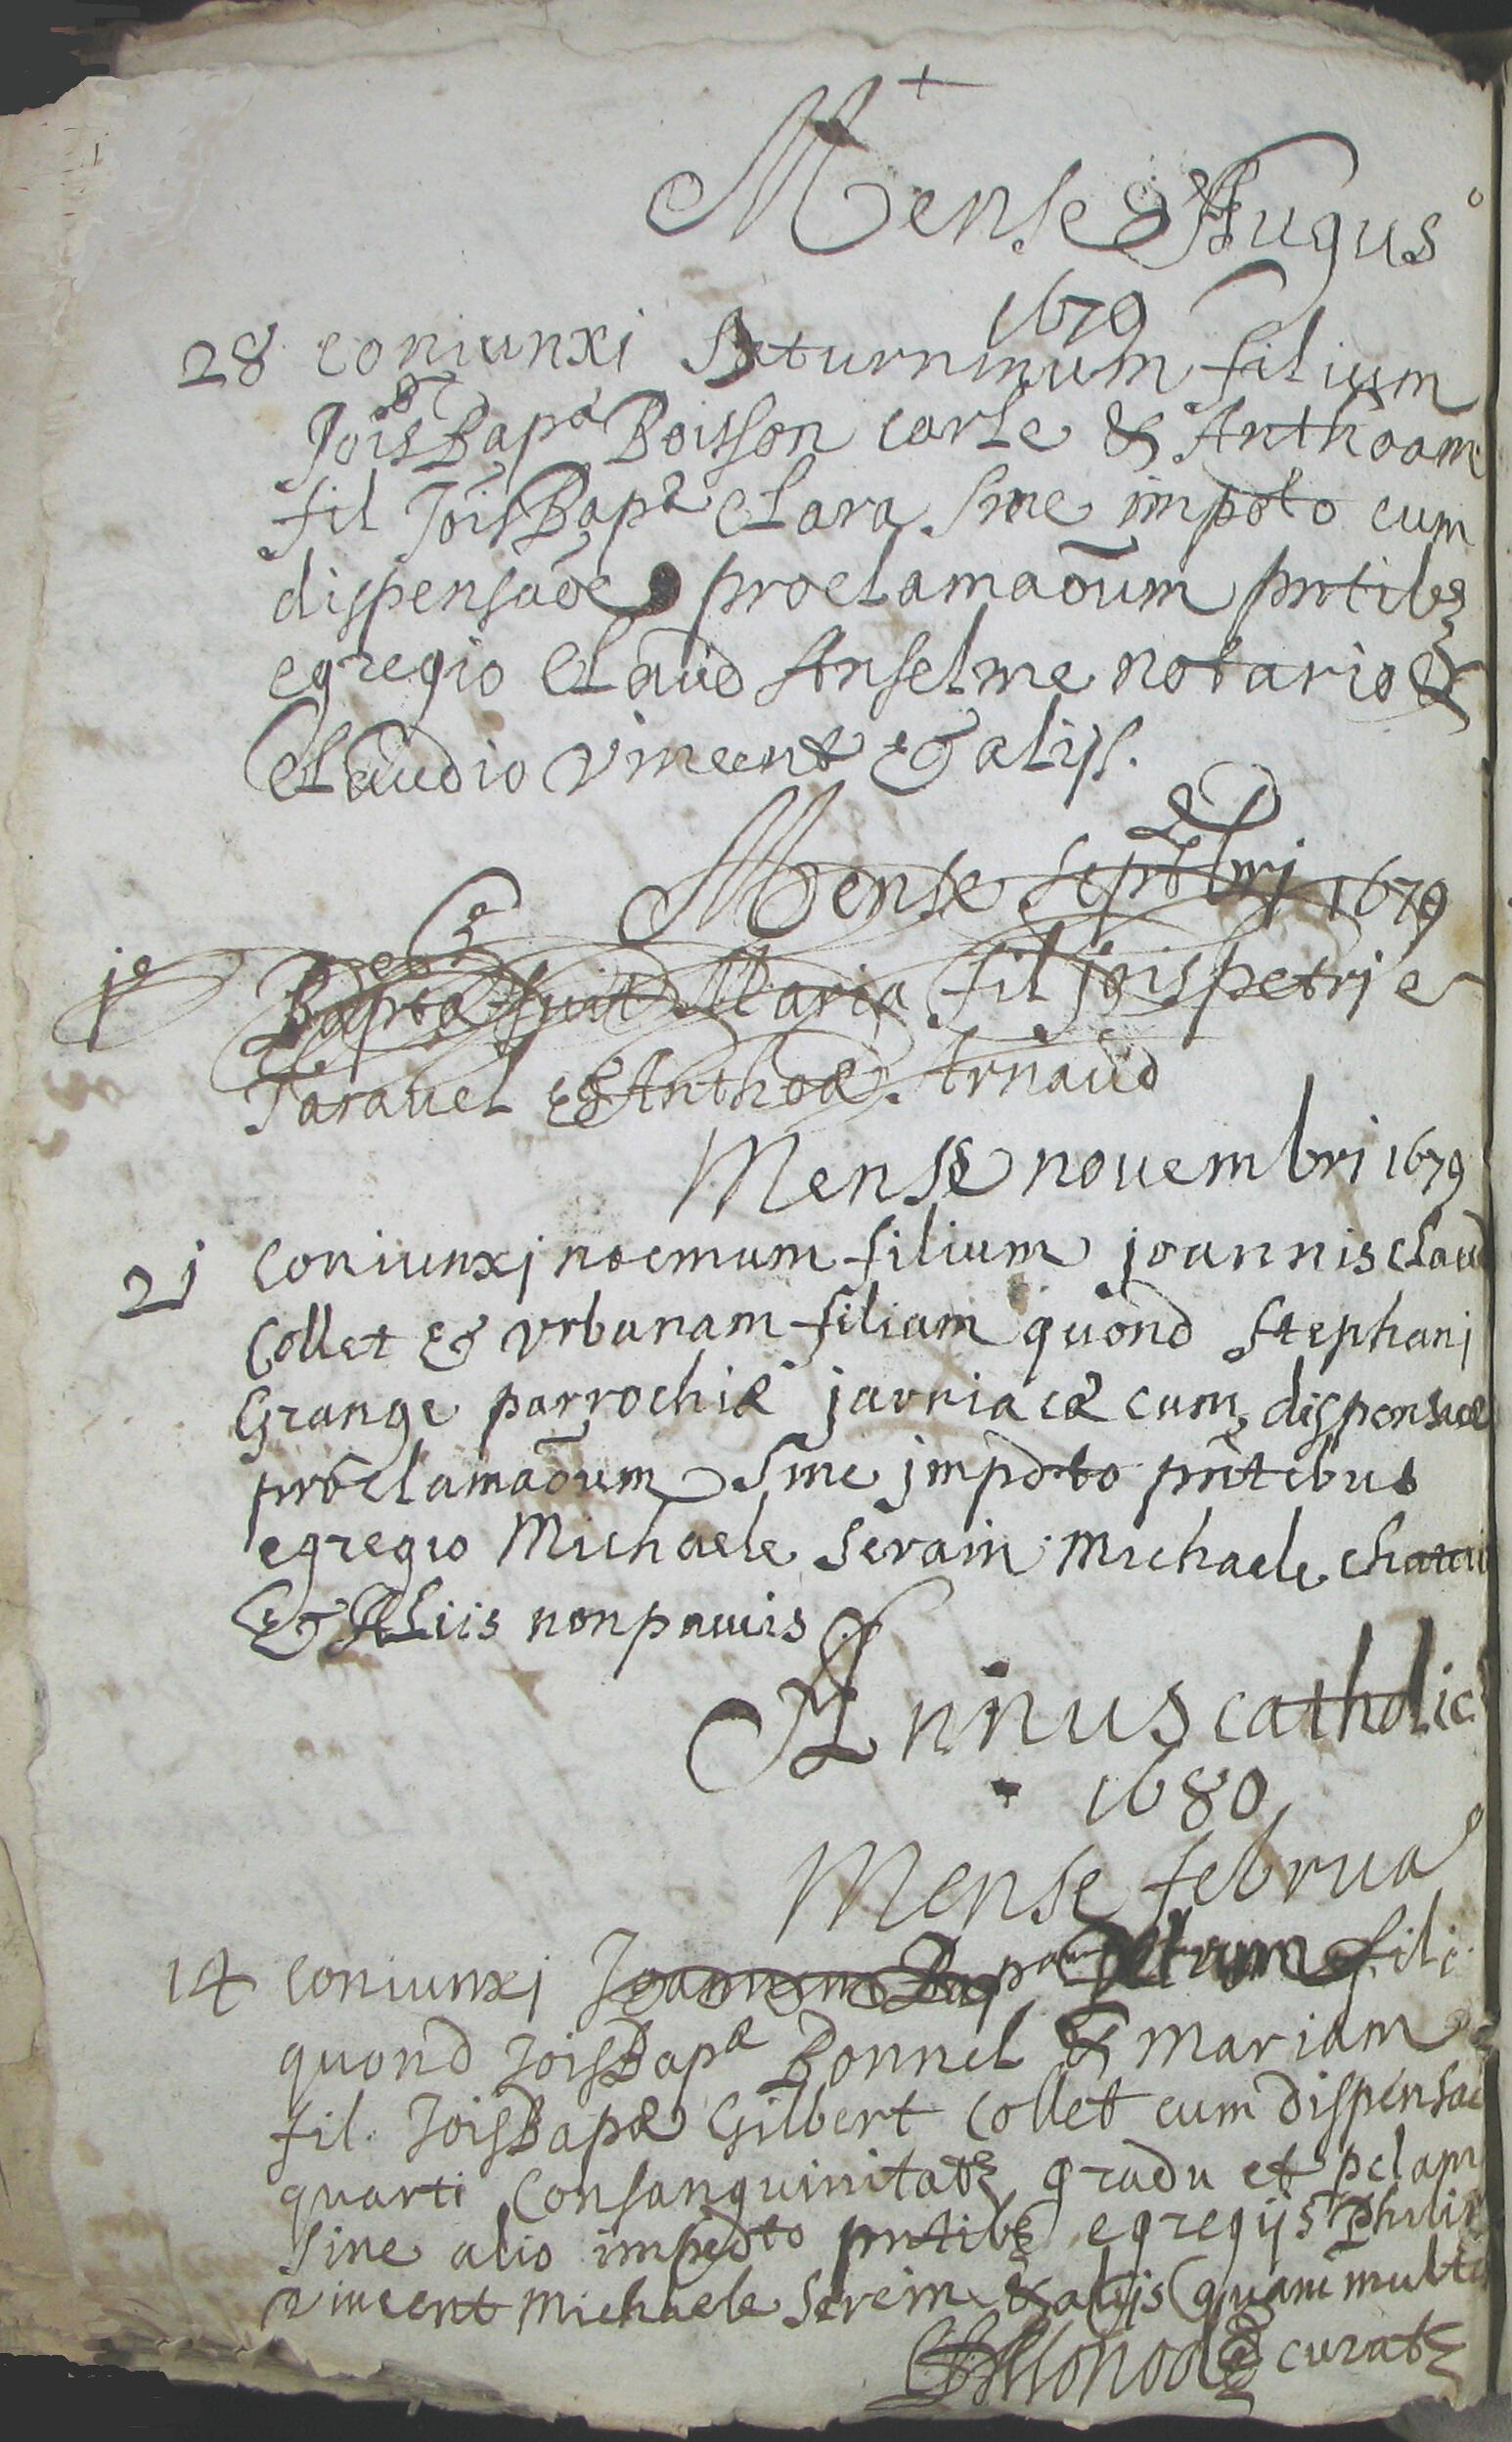 Mense Augus°
1679
28 coniunxi Saturninum filium
JoisBapª Boisson carle & Anthoam
fil JoisBapª Clara sine impdto cum
dispensaõe proclamaõum pntibȝ
egregio Claud Anselme notario &
Claudio Vincent & alijs.
Mense Septbrj 1679
je Bapta fuit Maria fil joispetri
Taravel & Anthoæ Arnaud
Mense novembri 1679
2j Coniunxj noemum filium joannis Claud
Collet & Vrbanam filiam quond Stephanj
Grange parrochiæ jarriacæ cum dispensaõe
proclamaõum sine jmpdto pntibus
egregio Michaele Serain Michaele
& Aliis non pauis
Annus catholic
1680
Mense februa
14 coniunxj Joannem Bap petrum fili
quond JoisBapæ Bonnel & mariam
fil. JoisBapæ Gilbert Collet cum dispensaõ
quarti Consanguinitatȝ gradu et pclam
sine alio impedto pntibȝ egregijs Philip
vincent Michaele Serein & alijs quam multis
curatȝ